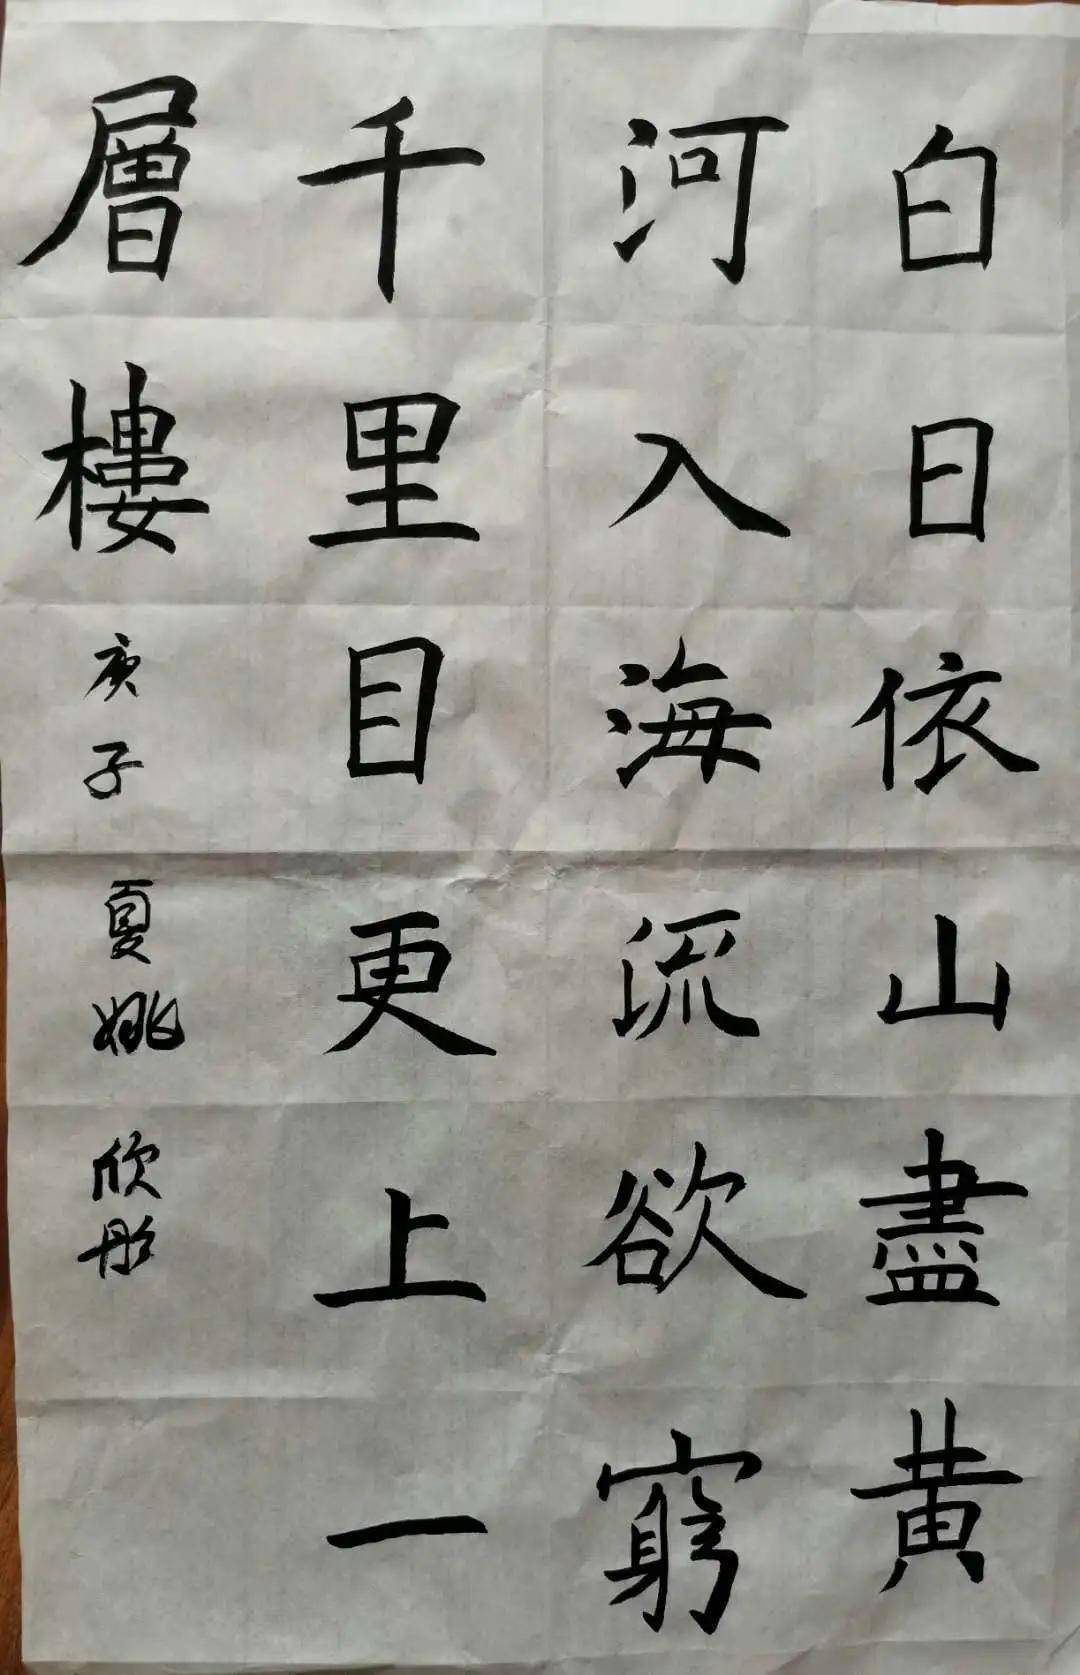 白日依山盡黄
河入海流欲窮
千里目更上一
層樓
庚子夏姚欣彤